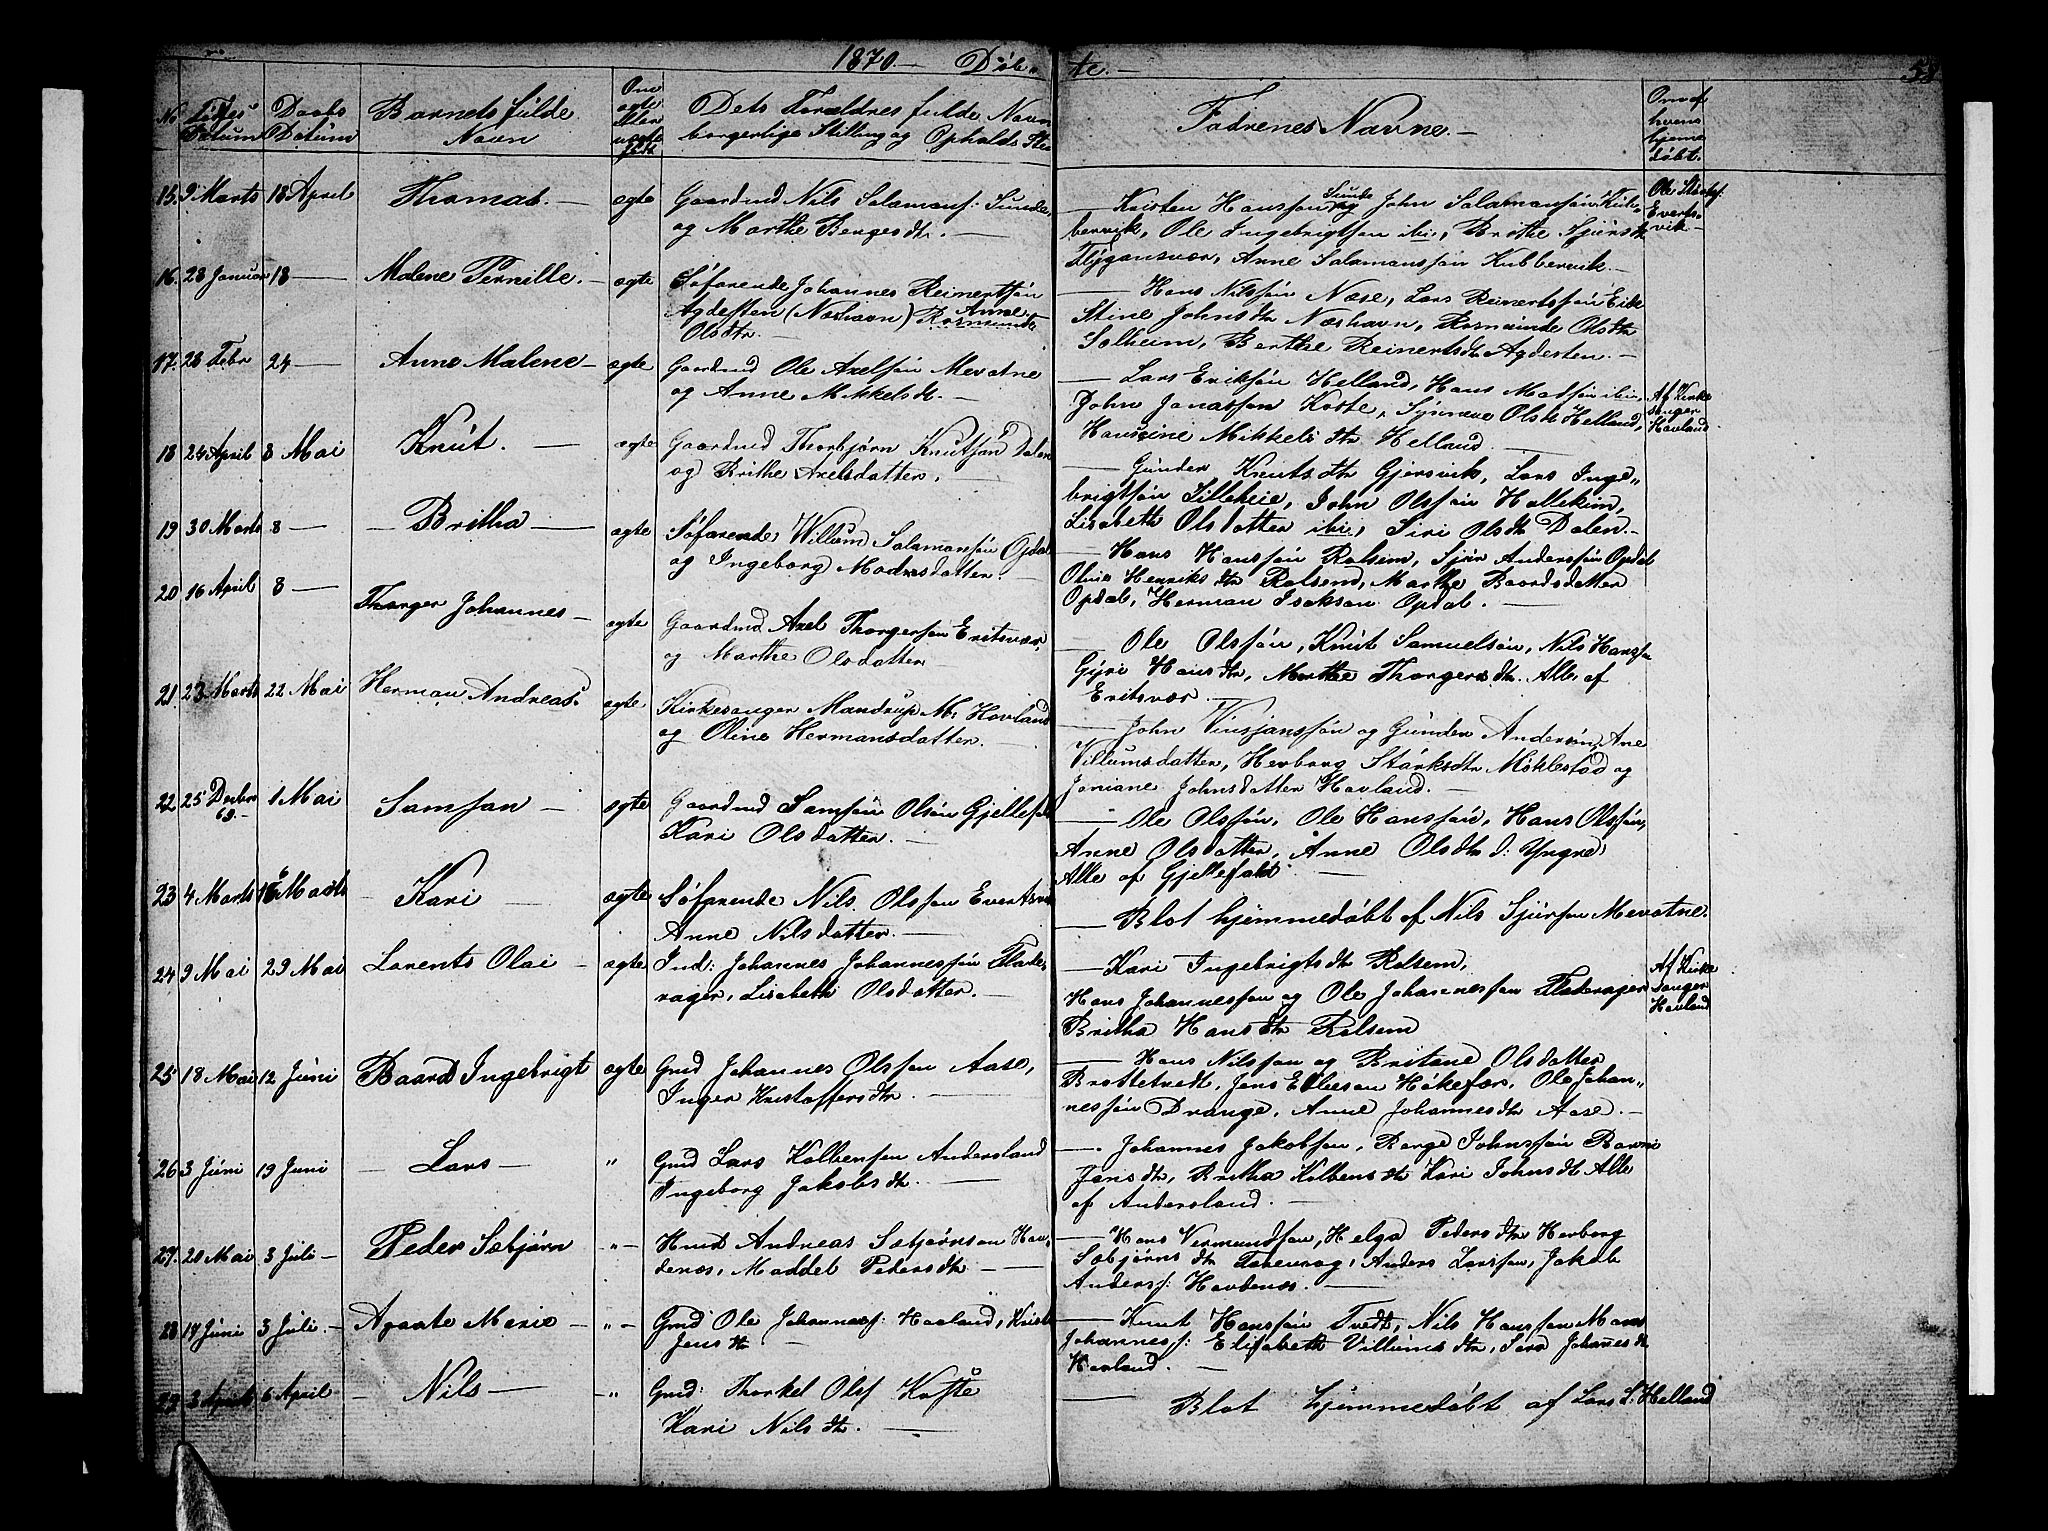 1870 — Døb-
te. —
58
No Fødsels Datum
Daabs Datum
Barnets fulde Navn
Om ægte eller uægte født
Dets Forældres fulde Navn borgerlige Stilling og Opholds Sted
Fadrenes Navne. —
Om af hvem hjemmedøbt.
15. 9 Marts 18 April Thomas. — ægte Gaardmd Nils Salamonsf: Sunde,
og Marthe Bergesdtr. —
— Kristen Hansson Sunde og John Salamansön Kub-
bervik, Ole Ingebrigtson ibi, Brithe Sjursdtr
Flÿgansvær, Anne Salamansön Kubbervik. —
Evertsvik —
16. 28 Januar 18 — Malene Pernille. — ægte Söfarende Johannes Reinertsön
Agdesten (Næshavn) Anne Rasmunde
Olsdtr. —
— Hans Nilsön Næse, Lars Reinertsön Eik
Stine Johnsdtr Næshavn, Rasmunde Olsdtr
Solheim, Berthe Reinertsdtr Agdesten. —
17. 26 Febr 24 — Anne Malene — ægte Gaardmd Ole Axelsön Mevatne
og Anne Mikkelsdtr. —
— Lars Eriksön Helland, Hans Madsön ibi,
John Janassön Koste, Synneve Olsdtr Helland,
Hansine Mikkelsdtr Helland —
Af Kirkesanger Havland
18 24 April 8 Mai Knut. — ægte Gaardmd Thorbjørn Knutsön Dalen
og Brithe Axelsdatter. —
— Gunder Knutsdtr Gjersvik, Lars Inge-
brigtsön Lilleheie, John Olsön Hallekim,
Lisabeth Olsdatter ibi, Siri Olsdtr Dalen. —
19 30 Marts 8 — Britha — ægte Söfarende Willum Salamansön Opdal
og Ingeborg Madsdatter. —
— Hans Hansön Rolsem, Sjur Andersön Opdal
Oline Henriksdtr Rolsem, Marthe Baardsdatter
Opdal, Herman Isaksen Opdal. —
20 16 April 8 — Thorger Johannes — ægte Gaardmd Axel Thorgersön Eritsvær,
og Marthe Olsdatter
— Ole Olsön, Knut Samuelsön, Nils Hansön
Gÿri Hansdtr, Marthe Thorgersdtr. Alle af
Eritsvær —
21 23 Marts 22 Mai Herman Andreas. ægte Kirkesanger Mandrup M. Hovland
og Oline Hermansdatter. —
— John Vinsjansön og Gunder Andersön, Ane
Villumsdatter, Herborg Størksdtr Møklestad og
Joniane Johnsdatter Havland. —
22 25 Decbr 69. — 1 Mai Samson — ægte Gaardmd Samsön Olsön Gjellefald
Kari Olsdatter. —
— Ole Olsön, Ole Hansön, Hans Olsön,
Anne Olsdatter, Anne Olsdtr d: Yngre,
Alle af Gjellefald
23 4 Marts 16 Marts Kari — ægte Söfarende Nils Olsson Evertsvik
Anne Nilsdatter. —
— Blot hjemmedöbt af Nils Sjurson Mevatne.
24 9 Mai 29 Mai Lorents Olai — ægte Ind: Johannes Johannesön Flade-
rager, Lisabeth Olsdatter. —
— Kari Ingebrigtsdtr Rolsem,
Hans Johannesson og Ole Johannesson Flaterager
Britha Hansdtr Rolsem
Af Kirkesanger Havland
25 18 Mai 12 Juni Baard Ingebrigt ægte Gmd Johannes Olsson Aase,
Inger Kristoffersdtr. —
— Hans Nilsson og Britane Olsdatter
Brattetvedt, Jens Ellesen Håkefær, Ole Johan-
nesön Drange, Anne Johannesdtr Aase. —
26 3 Juni 19 Juni — Lars — " Gmd Lars Kolbenson Andersland
Ingeborg Jakobsdtr. —
— Johannes Jakobson, Børge Johnsön Ravn
Jensdtr, Britha Kolbensdtr Kari Johnsdtr Alle
af Andersland. —
27. 20 Mai 3 Juli — Peder Sæbjørn " — Hmd Andreas Sæbjørnson Hav-
denæs, Maddel Pedersdtr —
— Hans Vermundson, Helga Pedersdtr Herborg
Sæbjørnsdtr Tarevaag, Anders Larson, Jakob
Andersf: Havdenæs. —
28 14 Juni 3 Juli. — Agaate Marie — " — Gmd Ole Johannesf: Haaland, Kristi
Jensdtr
— Knut Hansön Tvedt, Nils Hansson Mons
Johannesf: Elisabeth Villumsdtr, Sara Johanesdtr
Havland. —
29 3 April 6 April — — Nils — — " Gmd: Thorkel Olsf Kaste
Kari Nilsdtr. —
— Blot hjemmedöbt af Lars S. Helland